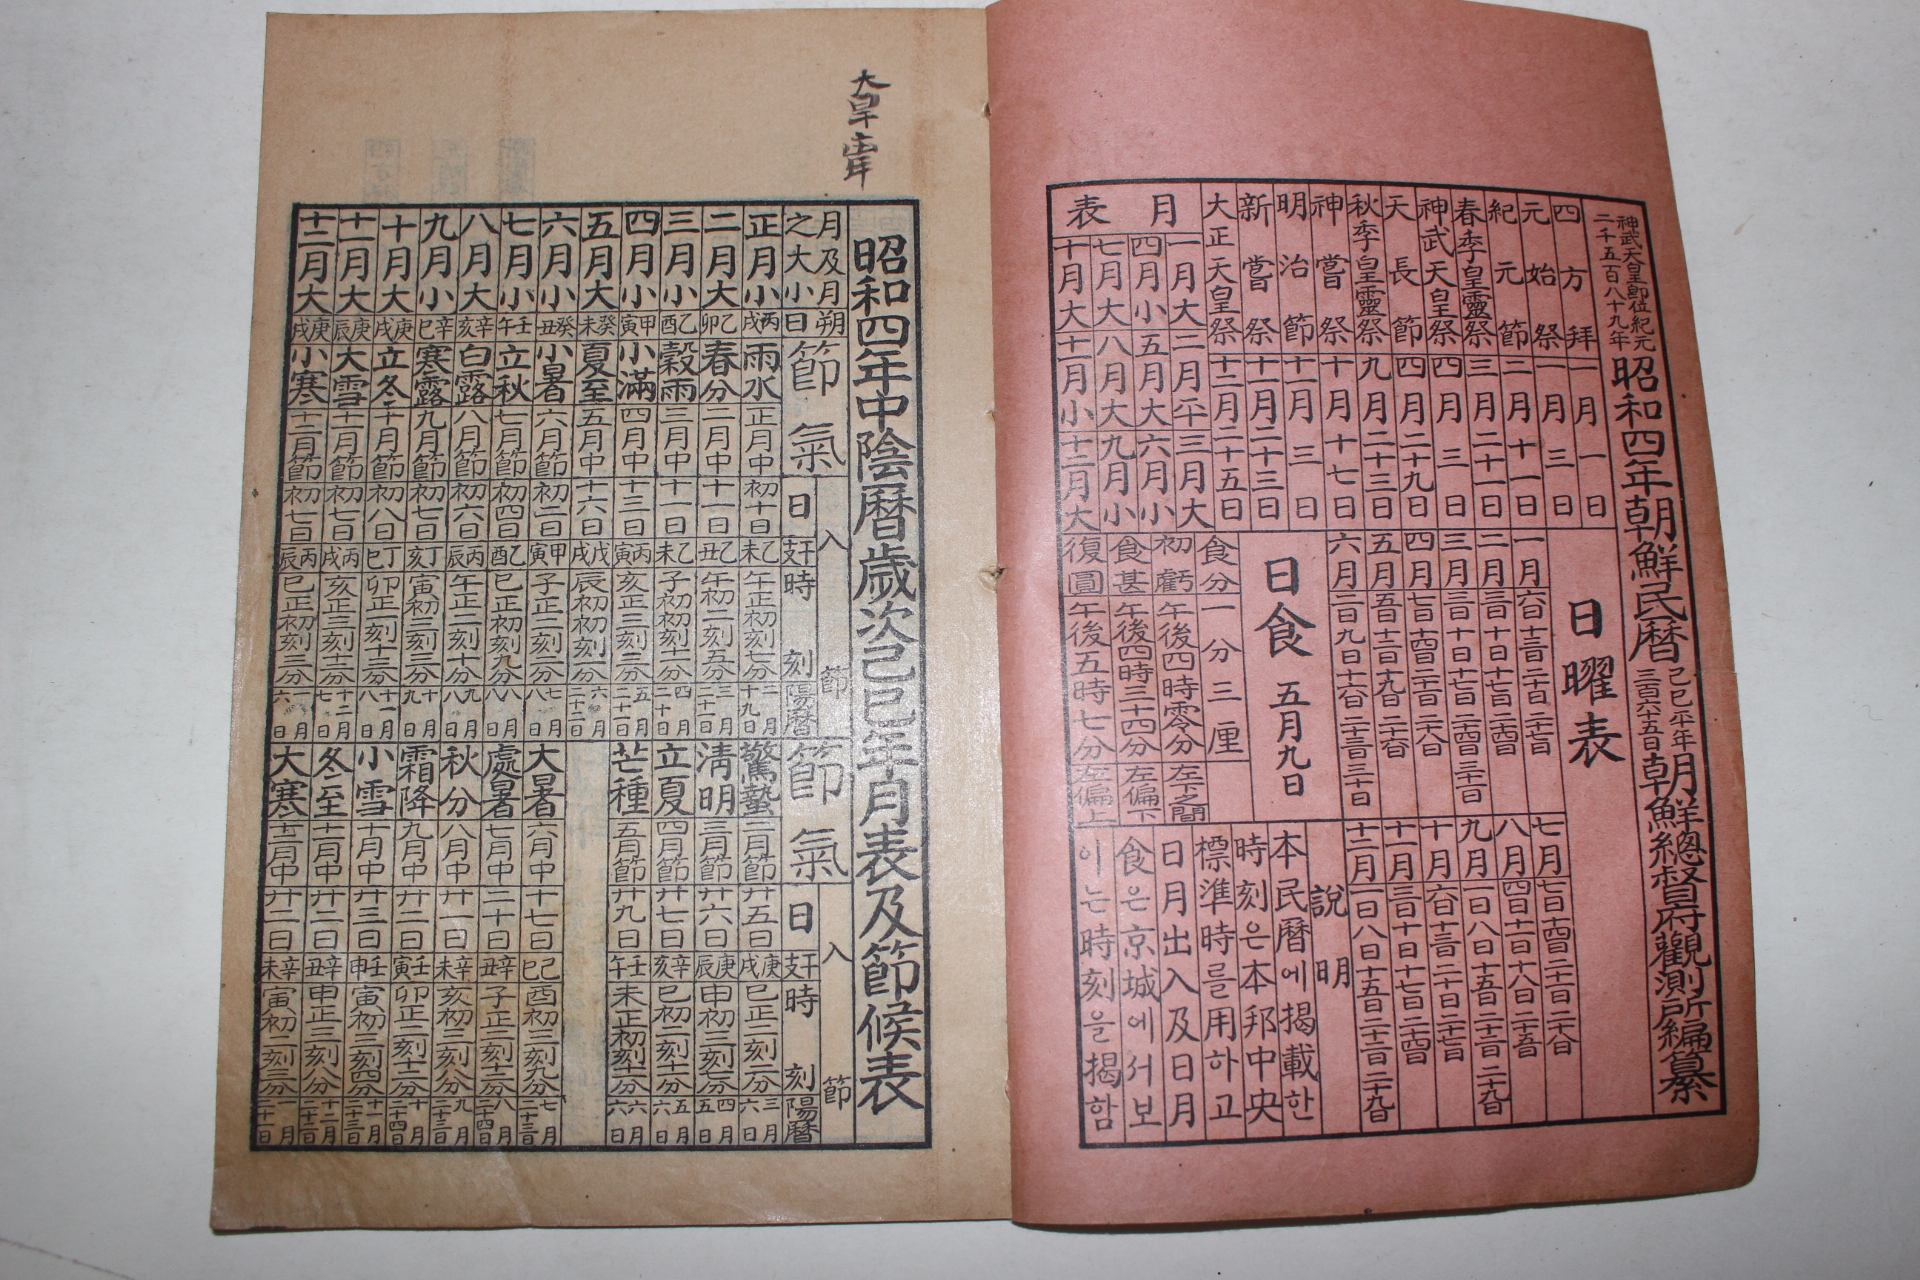 神武天皇即位紀元
二千五百八十九年
昭和四年朝鮮民曆
己巳平年
三百六十五日
朝鮮總督府觀測所編纂
四方拜 一月一日
元始祭 一月三日
紀元節 二月十一日
春季皇靈祭 三月二十一日
神武天皇祭 四月三日
天長節 四月二十九日
秋季皇靈祭 九月二十三日
神嘗祭 十月十七日
明治節 十一月三日
新嘗祭 十一月二十三日
大正天皇祭 十二月二十五日
月表
一月大 二月平 三月大
四月小 五月大 六月小
七月大 八月大 九月小
十月大 十一月小 十二月大
日曜表
一月 六日 十三日 二十日 二十七日
二月 三日 十日 十七日 二十四日
三月 三日 十日 十七日 二十四日 三十一日
四月 七日 十四日 二十一日 二十八日
五月 五日 十二日 十九日 二十六日
六月 二日 九日 十六日 二十三日 三十日
七月 七日 十四日 二十一日 二十八日
八月 四日 十一日 十八日 二十五日
九月 一日 八日 十五日 二十二日 二十九日
十月 六日 十三日 二十日 二十七日
十一月 三日 十日 十七日 二十四日
十二月 一日 八日 十五日 二十二日 二十九日
日食 五月九日
食分 一分三厘
初虧 午後四時零分 左下之間
食甚 午後四時三十四分 左偏下
復圓 午後五時七分 左偏上
說明
本民曆에揭載한
時刻은本邦中央
標準時를用하고
日月出入及日月
食은京城에서보
이는時刻을揭함
大皇
昭和四年中陰曆歲次己巳年月表及節候表
月及月之大小 朔日 節氣 入節 日 干支 時刻 陽曆 節氣 入節 日 干支 時刻 陽曆
正月小 丙戌 雨水 正月中 初十日 乙未 午正初刻七分 二月十九日 驚蟄 二月節 廿五日 庚戌 巳正二刻二分 三月六日
二月大 乙卯 春分 二月中 十一日 乙丑 午初二刻五分 三月二十一日 淸明 三月節 廿六日 庚辰 申初三刻六分 四月五日
三月小 乙酉 穀雨 三月中 十一日 乙未 子初初刻十一分 四月二十日 立夏 四月節 廿七日 辛亥 巳初二刻十分 五月六日
四月小 甲寅 小滿 四月中 十三日 丙寅 亥正三刻三分 五月二十一日 芒種 五月節 廿九日 壬午 未正初刻十分 六月六日
五月大 癸未 夏至 五月中 十六日 戊戌 辰初初刻一分 六月二十二日
六月小 癸丑 小暑 六月節 初二日 甲寅 子正二刻二分 七月八日 大暑 六月中 十七日 己巳 酉初三刻九分 七月二十三日
七月小 壬午 立秋 七月節 初四日 乙酉 巳正初刻九分 八月八日 處暑 七月中 二十日 辛丑 子正二刻十二分 八月二十四日
八月大 辛亥 白露 八月節 初六日 丙辰 午正二刻十分 九月八日 秋分 八月中 廿一日 辛未 亥初三刻八分 九月二十三日
九月小 辛巳 寒露 九月節 初七日 丁亥 寅初三刻三分 十月九日 霜降 九月中 廿二日 壬寅 卯正二刻十二分 十月二十四日
十月大 庚戌 立冬 十月節 初八日 丁巳 卯正一刻十三分 十一月八日 小雪 十月中 廿三日 壬申 寅初三刻四分 十一月二十三日
十一月大 庚辰 大雪 十一月節 初七日 丙戌 亥正三刻十二分 十二月七日 冬至 十一月中 廿二日 辛丑 申正三刻八分 十二月二十二日
十二月大 庚戌 小寒 十二月節 初七日 丙辰 巳正初刻三分 一月六日 大寒 十二月中 廿二日 辛未 寅初二刻三分 一月二十一日